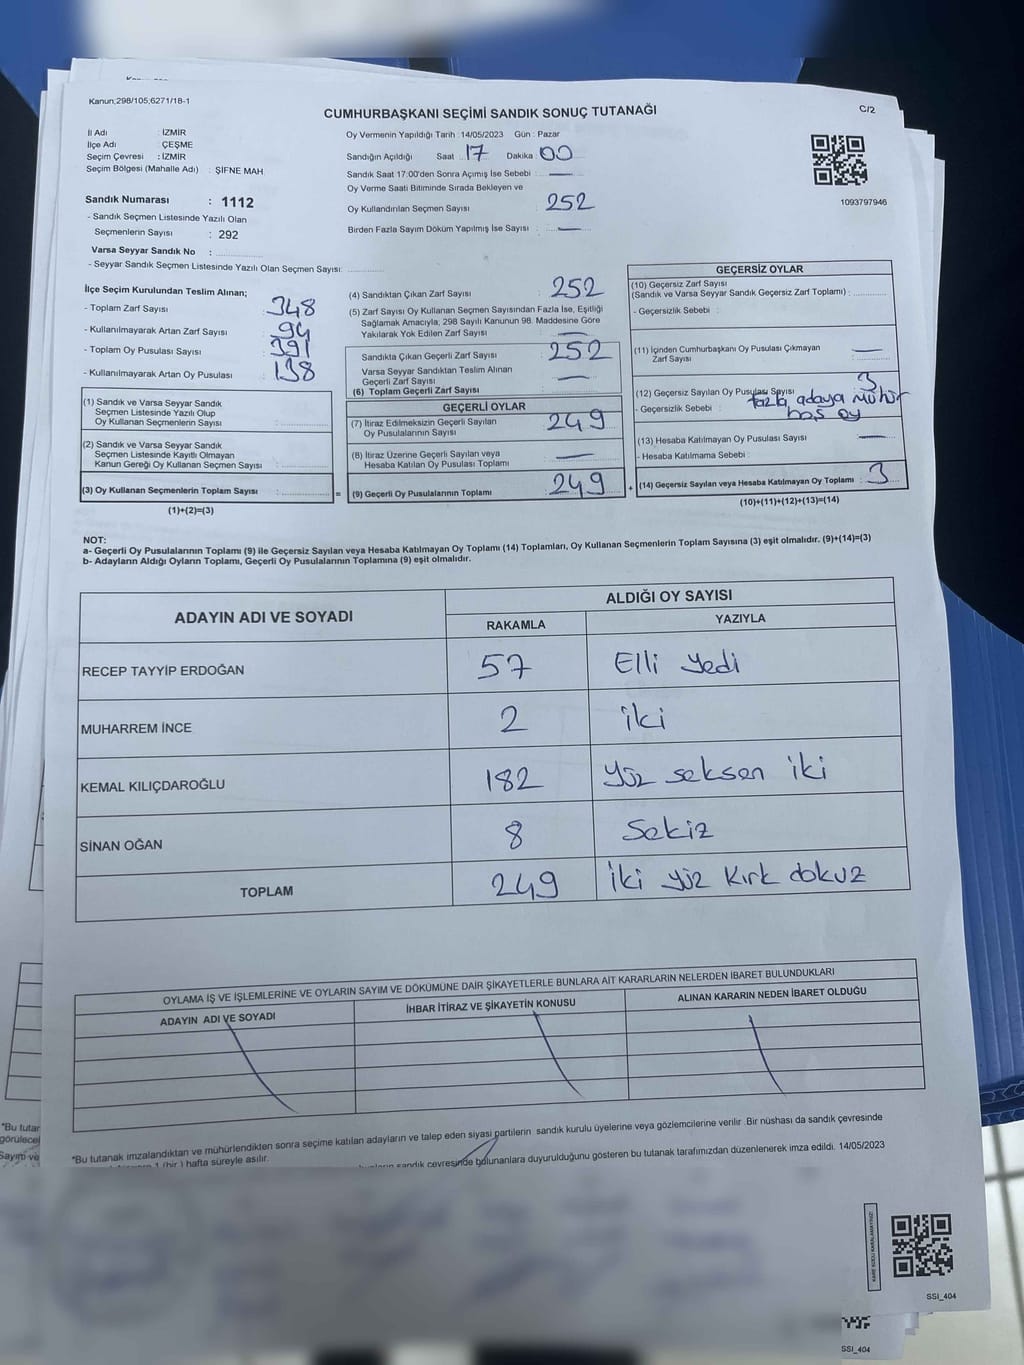 Kanun;298/105;6271/18-1
CUMHURBAŞKANI SEÇİMİ SANDIK SONUÇ TUTANAĞI
C/2
İl Adı : İZMİR
İlçe Adı : ÇEŞME
Seçim Çevresi : İZMİR
Seçim Bölgesi (Mahalle Adı) : ŞİFNE MAH
Sandık Numarası : 1112
- Sandık Seçmen Listesinde Yazılı Olan
Seçmenlerin Sayısı : 292
Varsa Seyyar Sandık No :
- Seyyar Sandık Seçmen Listesinde Yazılı Olan Seçmen Sayısı:
Oy Vermenin Yapıldığı Tarih : 14/05/2023 Gün : Pazar
Sandığın Açıldığı Saat 17 Dakika 00
Sandık Saat 17:00'den Sonra Açımış İse Sebebi : —
Oy Verme Saati Bitiminde Sırada Bekleyen ve
Oy Kullandırılan Seçmen Sayısı : 252
Birden Fazla Sayım Döküm Yapılmış İse Sayısı : —
1093797946
İlçe Seçim Kurulundan Teslim Alınan;
- Toplam Zarf Sayısı : 348
- Kullanılmayarak Artan Zarf Sayısı : 94
- Toplam Oy Pusulası Sayısı : 391
- Kullanılmayarak Artan Oy Pusulası : 138
(1) Sandık ve Varsa Seyyar Sandık
Seçmen Listesinde Yazılı Olup
Oy Kullanan Seçmenlerin Sayısı :
(2) Sandık ve Varsa Seyyar Sandık
Seçmen Listesinde Kayıtlı Olmayan
Kanun Gereği Oy Kullanan Seçmen Sayısı :
(3) Oy Kullanan Seçmenlerin Toplam Sayısı :
(1)+(2)=(3)
=
(4) Sandıktan Çıkan Zarf Sayısı : 252
(5) Zarf Sayısı Oy Kullanan Seçmen Sayısından Fazla İse, Eşitliği
Sağlamak Amacıyla, 298 Sayılı Kanunun 98. Maddesine Göre
Yakılarak Yok Edilen Zarf Sayısı : —
Sandıkta Çıkan Geçerli Zarf Sayısı : 252
Varsa Seyyar Sandıktan Teslim Alınan
Geçerli Zarf Sayısı : —
(6) Toplam Geçerli Zarf Sayısı :
GEÇERLİ OYLAR
(7) İtiraz Edilmeksizin Geçerli Sayılan
Oy Pusulalarının Sayısı : 249
(8) İtiraz Üzerine Geçerli Sayılan veya
Hesaba Katılan Oy Pusulası Toplamı : —
(9) Geçerli Oy Pusulalarının Toplamı : 249
+
GEÇERSİZ OYLAR
(10) Geçersiz Zarf Sayısı
(Sandık ve Varsa Seyyar Sandık Geçersiz Zarf Toplamı) :
- Geçersizlik Sebebi :
(11) İçinden Cumhurbaşkanı Oy Pusulası Çıkmayan
Zarf Sayısı : —
(12) Geçersiz Sayılan Oy Pusulası Sayısı : 3
- Geçersizlik Sebebi : fazla adaya mühür
boş oy
(13) Hesaba Katılmayan Oy Pusulası Sayısı : —
- Hesaba Katılmama Sebebi :
(14) Geçersiz Sayılan veya Hesaba Katılmayan Oy Toplamı : 3
(10)+(11)+(12)+(13)=(14)
NOT:
a- Geçerli Oy Pusulalarının Toplamı (9) ile Geçersiz Sayılan veya Hesaba Katılmayan Oy Toplamı (14) Toplamları, Oy Kullanan Seçmenlerin Toplam Sayısına (3) eşit olmalıdır. (9)+(14)=(3)
b- Adayların Aldığı Oyların Toplamı, Geçerli Oy Pusulalarının Toplamına (9) eşit olmalıdır.
ADAYIN ADI VE SOYADI
ALDIĞI OY SAYISI
RAKAMLA YAZIYLA
RECEP TAYYİP ERDOĞAN 57 Elli yedi
MUHARREM İNCE 2 iki
KEMAL KILIÇDAROĞLU 182 yüz seksen iki
SİNAN OĞAN 8 Sekiz
TOPLAM 249 iki yüz kırk dokuz
OYLAMA İŞ VE İŞLEMLERİNE VE OYLARIN SAYIM VE DÖKÜMÜNE DAİR ŞİKAYETLERLE BUNLARA AİT KARARLARIN NELERDEN İBARET BULUNDUKLARI
ADAYIN ADI VE SOYADI İHBAR İTİRAZ VE ŞİKAYETİN KONUSU ALINAN KARARIN NEDEN İBARET OLDUĞU
*Bu tutanak imzalandıktan ve mühürlendikten sonra seçime katılan adayların ve talep eden siyasi partilerin sandık kurulu üyelerine veya gözlemcilerine verilir .Bir nüshası da sandık çevresinde
1 (bir ) hafta süreyle asılır.
sandık çevresinde bulunanlara duyurulduğunu gösteren bu tutanak tarafımızdan düzenlenerek imza edildi. 14/05/2023
*Bu tutar
görülecel
Sayım ve
KARE KODU KARALAMAYINIZ!
SSI_404
SSI_404